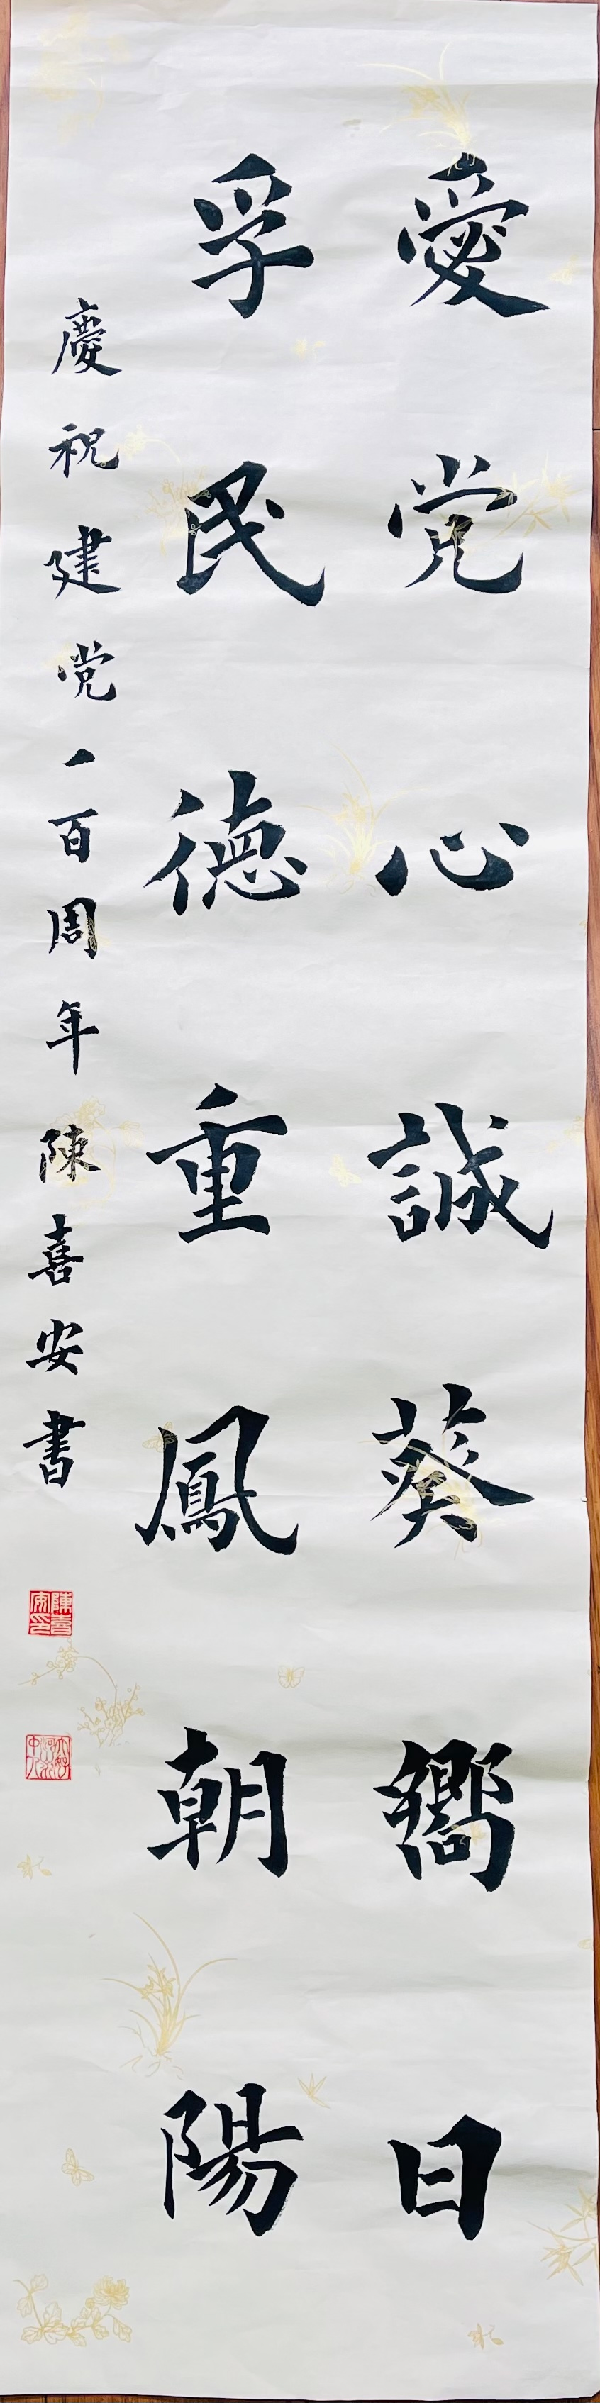 愛党心誠葵嚮日
孚民德重鳳朝陽
慶祝建党一百周年陳喜安書
陳喜安印